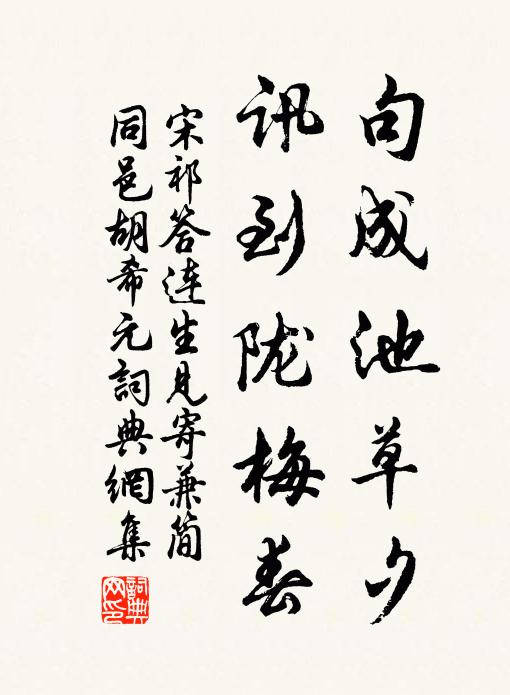 句成池草夕
讯到陇梅春
宋祁答连生见寄兼简
同邑胡希元詞典網集
詞典
网印